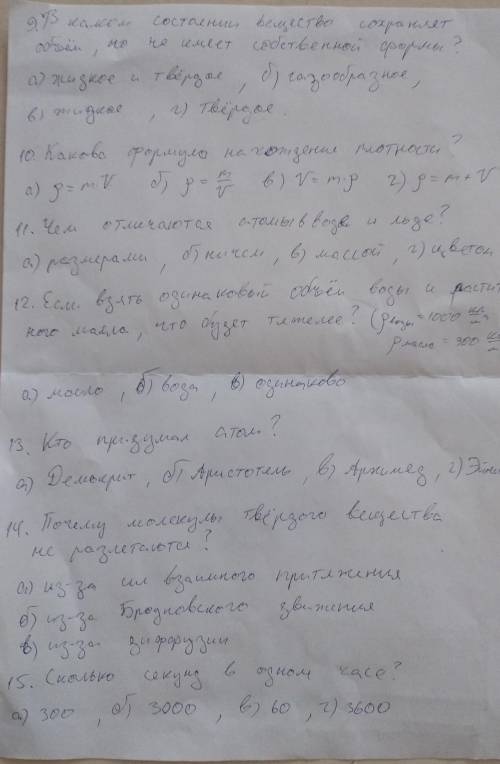 9. В каком состоянии вещество сохраняет
объём, но не имеет собственной формы?
а) жидкое и твёрдое, б) газообразное,
в) жидкое, г) твёрдое.
10. Какова формула нахождения плотности?
а) ρ = m·V б) ρ = m/V в) V = m·ρ г) ρ = m + V
11. Чем отличаются атомы в воде и льде?
а) размерами, б) ничем, в) массой, г) цветом
12. Если взять одинаковый объём воды и растит
ного масла, что будет тяжелее? (ρ воды = 1000 кг/м
ρ масла = 900 кг/м
а) масло, б) вода, в) одинаково
13. Кто придумал атом?
а) Демокрит, б) Аристотель, в) Архимед, г)
14. Почему молекулы твёрдого вещества
не разлетаются?
а) из-за сил взаимного притяжения
б) из-за Броуновского движения
в) из-за диффузии
15. Сколько секунд в одном часе?
а) 300, б) 3000, в) 60, г) 3600